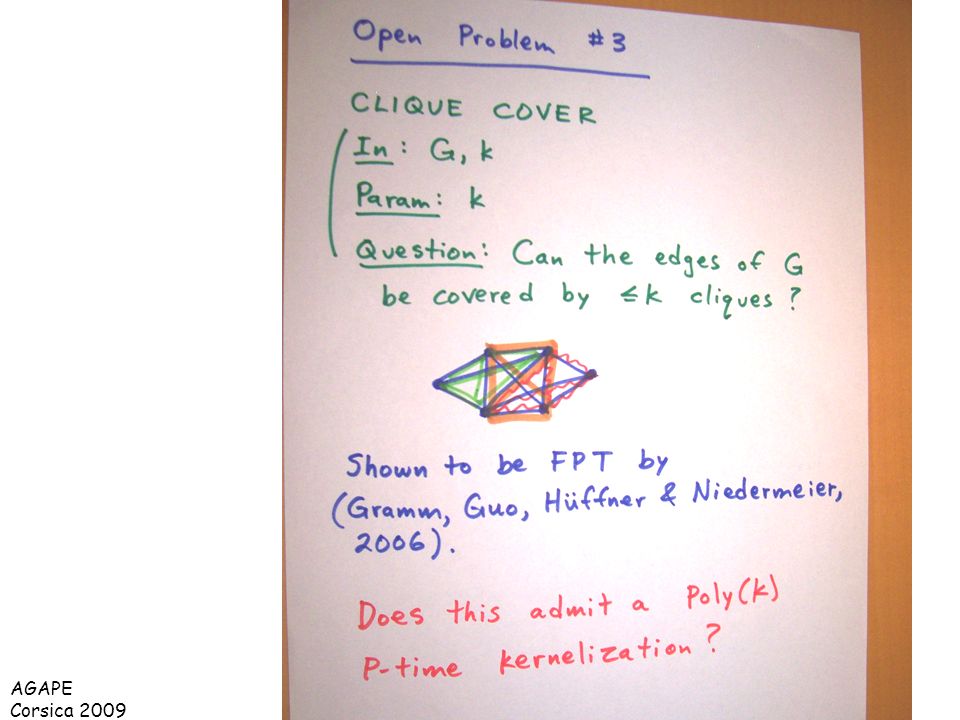 Open Problem #3
CLIQUE COVER
In: G, k
Param: k
Question: Can the edges of G
be covered by ≤k cliques?
Shown to be FPT by
(Gramm, Guo, Hüffner & Niedermeier,
2006).
Does this admit a Poly(k)
P-time kernelization?
AGAPE
Corsica 2009